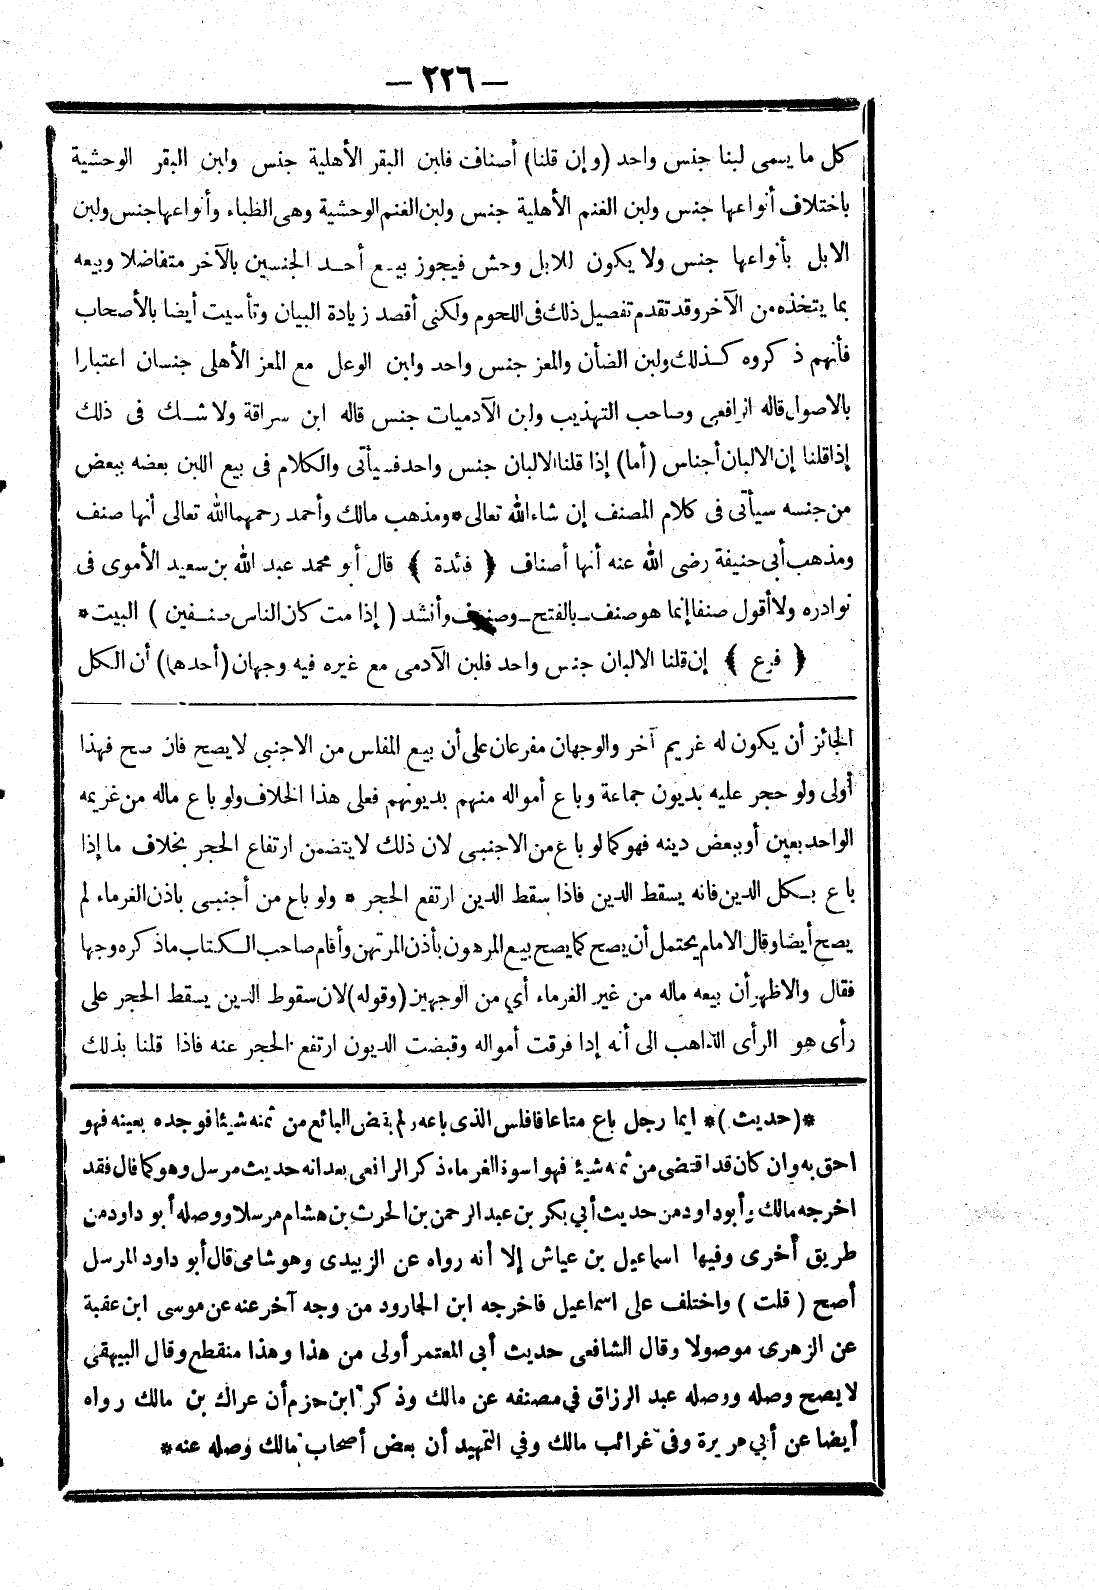 — ٢٢٦ —
كل ما يسمى لبنا جنس واحد (وإن قلنا) أصناف فلبن البقر الأهلية جنس ولبن البقر الوحشية
باختلاف أنواعها جنس ولبن الغنم الأهلية جنس ولبن الغنم الوحشية وهى الظباء وأنواعها جنس ولبن
الابل بأنواعها جنس ولا يكون للابل وحش فيجوز بيع أحد الجنسين بالآخر متفاضلا وبيعه
بما يتخذه من الآخر وقد تقدم تفصيل ذلك فى اللحوم ولكنى أقصد زيادة البيان وتأسيت أيضا بالأصحاب
فأنهم ذكروه كذلك ولبن الضأن والمعز جنس واحد ولبن الوعل مع المعز الأهلى جنسان اعتبارا
بالاصول قاله الرافعى وصاحب التهذيب ولبن الآدميات جنس قاله ابن سراقة ولا شك فى ذلك
إذا قلنا إن الالبان أجناس (أما) إذا قلنا الالبان جنس واحد فسيأتى والكلام فى بيع اللبن بعضه ببعض
من جنسه سيأتى فى كلام المصنف إن شاء الله تعالى * ومذهب مالك وأحمد رحمهما الله تعالى أنها صنف
ومذهب أبى حنيفة رضى الله عنه أنها أصناف ﴿ فائدة ﴾ قال أبو محمد عبد الله بن سعيد الأموى فى
نوادره ولا أقول صنفا إنما هو صنف ـ بالفتح ـ وصنوف وأنشد ( إذا مت كان الناس صنفين ) البيت *
﴿ فرع ﴾ إن قلنا الالبان جنس واحد فلبن الآدمى مع غيره فيه وجهان (أحدها) أن الكل
الجائز أن يكون له غريم آخر والوجهان مفرعان على أن بيع المفلس من الاجنبى لا يصح فان صح فهذا
أولى ولو حجر عليه بديون جماعة وباع أمواله منهم بديونهم فعلى هذا الخلاف ولو باع ماله من غريمه
الواحد بعين أو ببعض دينه فهو كما لو باع من الاجنبى لان ذلك لا يتضمن ارتفاع الحجر بخلاف ما إذا
باع بكل الدين فانه يسقط الدين فاذا سقط الدين ارتفع الحجر * ولو باع من أجنبى باذن الغرماء لم
يصح أيضا وقال الامام يحتمل أن يصح كما يصح بيع المرهون بأذن المرتهن وأقام صاحب الكتاب ما ذكره وجها
فقال والاظهر أن بيعه ماله من غير الغرماء أي من الوجهين (وقوله) لان سقوط الدين يسقط الحجر على
رأى هو الرأى الذاهب الى أنه إدا فرقت أمواله وقبضت الديون ارتفع الحجر عنه فاذا قلنا بذلك
*(حديث)* ايما رجل باع متاعا فافلس الذى باعه ولم يقض البائع من ثمنه شيئا فوجده بعينه فهو
احق به وان كان قد اقتضى من ثمنه شيئا فهو اسوة الغرماء ذكر الرافعى بعد انه حديث مرسل وهو كما قال فقد
اخرجه مالك وأبو داود من حديث أبي بكر بن عبد الرحمن بن الحرث بن هشام مرسلا ووصله أبو داود من
طريق أخرى وفيها اسماعيل بن عياش إلا أنه رواه عن الزبيدى وهو شامى قال أبو داود المرسل
أصح ( قلت ) واختلف على اسماعيل فاخرجه ابن الجارود من وجه آخر عنه عن موسى ابن عقبة
عن الزهرى موصولا وقال الشافعى حديث أبى المعتمر أولى من هذا وهذا منقطع وقال البيهقى
لا يصح وصله ووصله عبد الرزاق في مصنفه عن مالك وذكر ابن حزم أن عراك بن مالك رواه
أيضا عن أبي هريرة وفى غرائب مالك وفي التمهيد أن بعض أصحاب مالك وصله عنه *